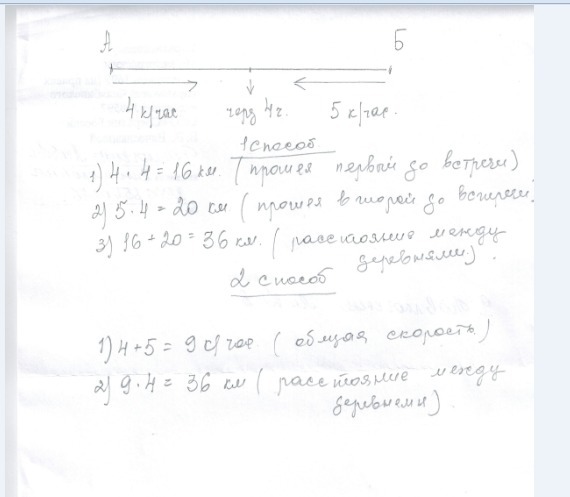 А Б
4 к/час через 4 ч. 5 к/час.
1 способ
1) 4 · 4 = 16 км. (прошел первый до встречи)
2) 5 · 4 = 20 км (прошел второй до встречи)
3) 16 + 20 = 36 км. (расстояние между
деревнями).
2 способ
1) 4 + 5 = 9 к/час. (общая скорость)
2) 9 · 4 = 36 км (расстояние между
деревнеми).